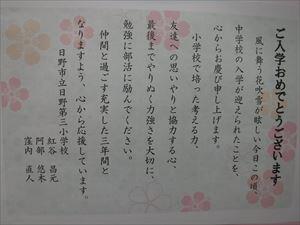 ご入学おめでとうございます
風に舞う花吹雪が眩しい今日この頃、
中学校の入学が迎えられたことを、
心からお慶び申し上げます。
小学校で培った考える力、
友達への思いやりと協力する心、
最後までやりぬく力強さを大切に、
勉強に部活に励んでください。
仲間と過ごす充実した三年間と
なりますよう、心から応援しています。
日野市立日野第三小学校
紅谷 昌元
阿部 悠木
窪内 直人